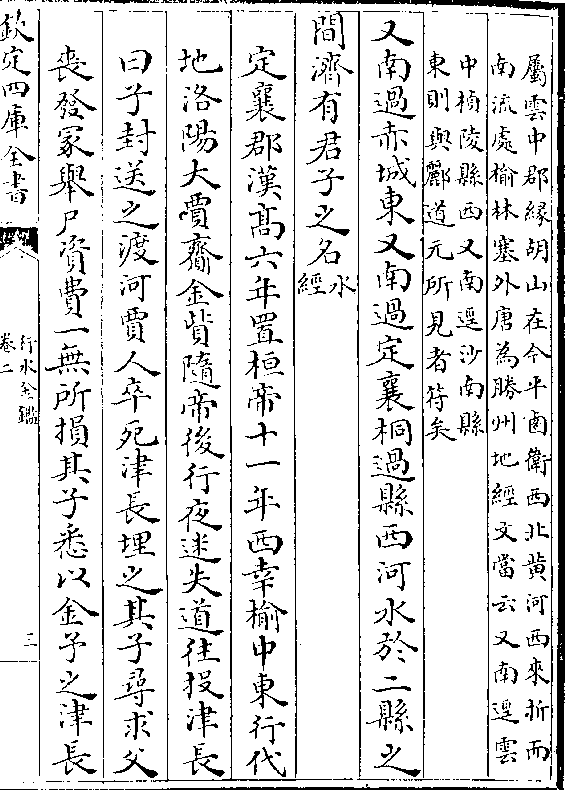 屬雲中郡縁胡山在今平鹵衛西北黄河西來折而
南流處榆林塞外唐為勝州地經文當云又南逕雲
中楨陵縣西又南逕沙南縣
東則與酈道元所見者符矣
又南過赤城東又南過定襄桐過縣西河水於二縣之
間濟有君子之名水經
定襄郡漢髙六年置桓帝十一年西幸榆中東行代
地洛陽大賈齎金貲隨帝後行夜迷失道往投津長
曰子封送之渡河賈人卒死津長埋之其子尋求父
喪發冢舉尸資費一無所損其子悉以金予之津長
欽定四庫全書
行水金鑑
卷二
三